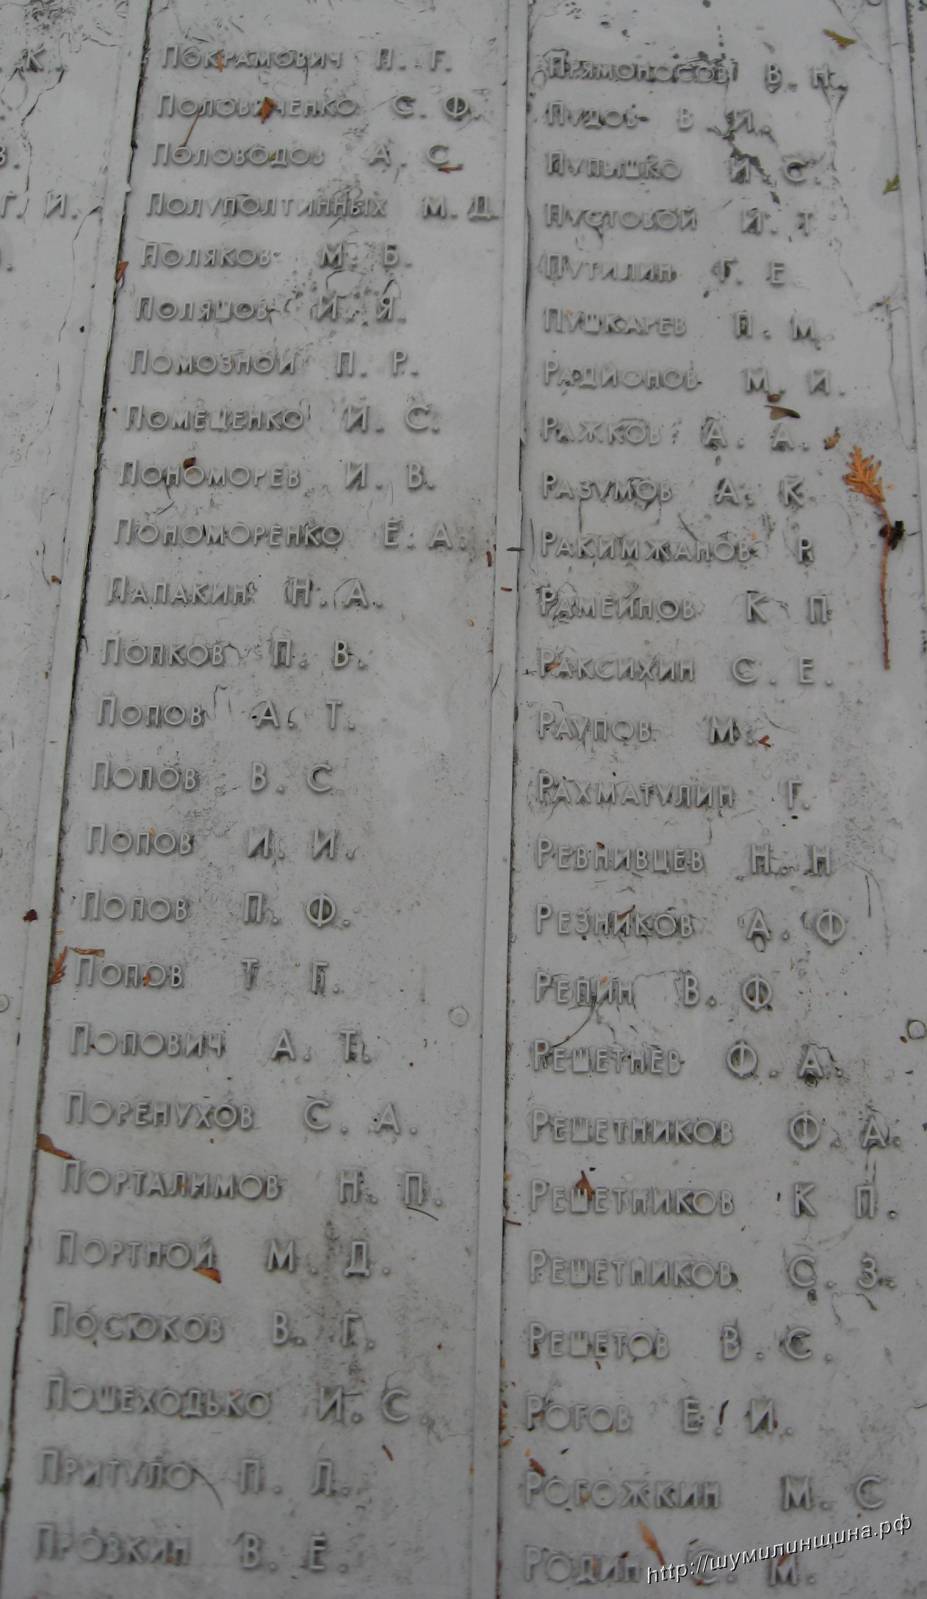 К.
Г. И.
Покрамович П. Г.
Половиченко С. Ф.
Половодов А. С.
Полуполтинных М. Д.
Поляков М. Б.
Поляшов И. Я.
Помозной П. Р.
Помещенко И. С.
Пономорев И. В.
Пономоренко Е. А.
Папакин Н. А.
Попков П. В.
Попов А. Т.
Попов В. С
Попов И. И.
Попов П. Ф.
Попов Т Г.
Попович А. Т.
Поренухов С. А.
Порталимов Н. П.
Портной М. Д.
Посюков В. Г.
Пошеходько И. С.
Притуло П. Л.
Прозкин В. Е.
Прямоносов В. Н.
Пудов В И.
Пупышко И С.
Пустовой И. Т
Путилин Г. Е
Пушкарев П. М.
Радионов М. И.
Ражков А. А.
Разумов А. К.
Ракимжанов Р
Рамейнов К П
Раксихин С. Е.
Раупов М.
Рахматулин Г.
Ревнивцев Н. Н
Резников А. Ф
Репин В. Ф
Решетнев Ф. А.
Решетников Ф. А.
Решетников К П.
Решетников С. З.
Решетов В. С.
Рогов Е. И.
Рогожкин М. С
Родин С. М.
http://шумилинщина.рф